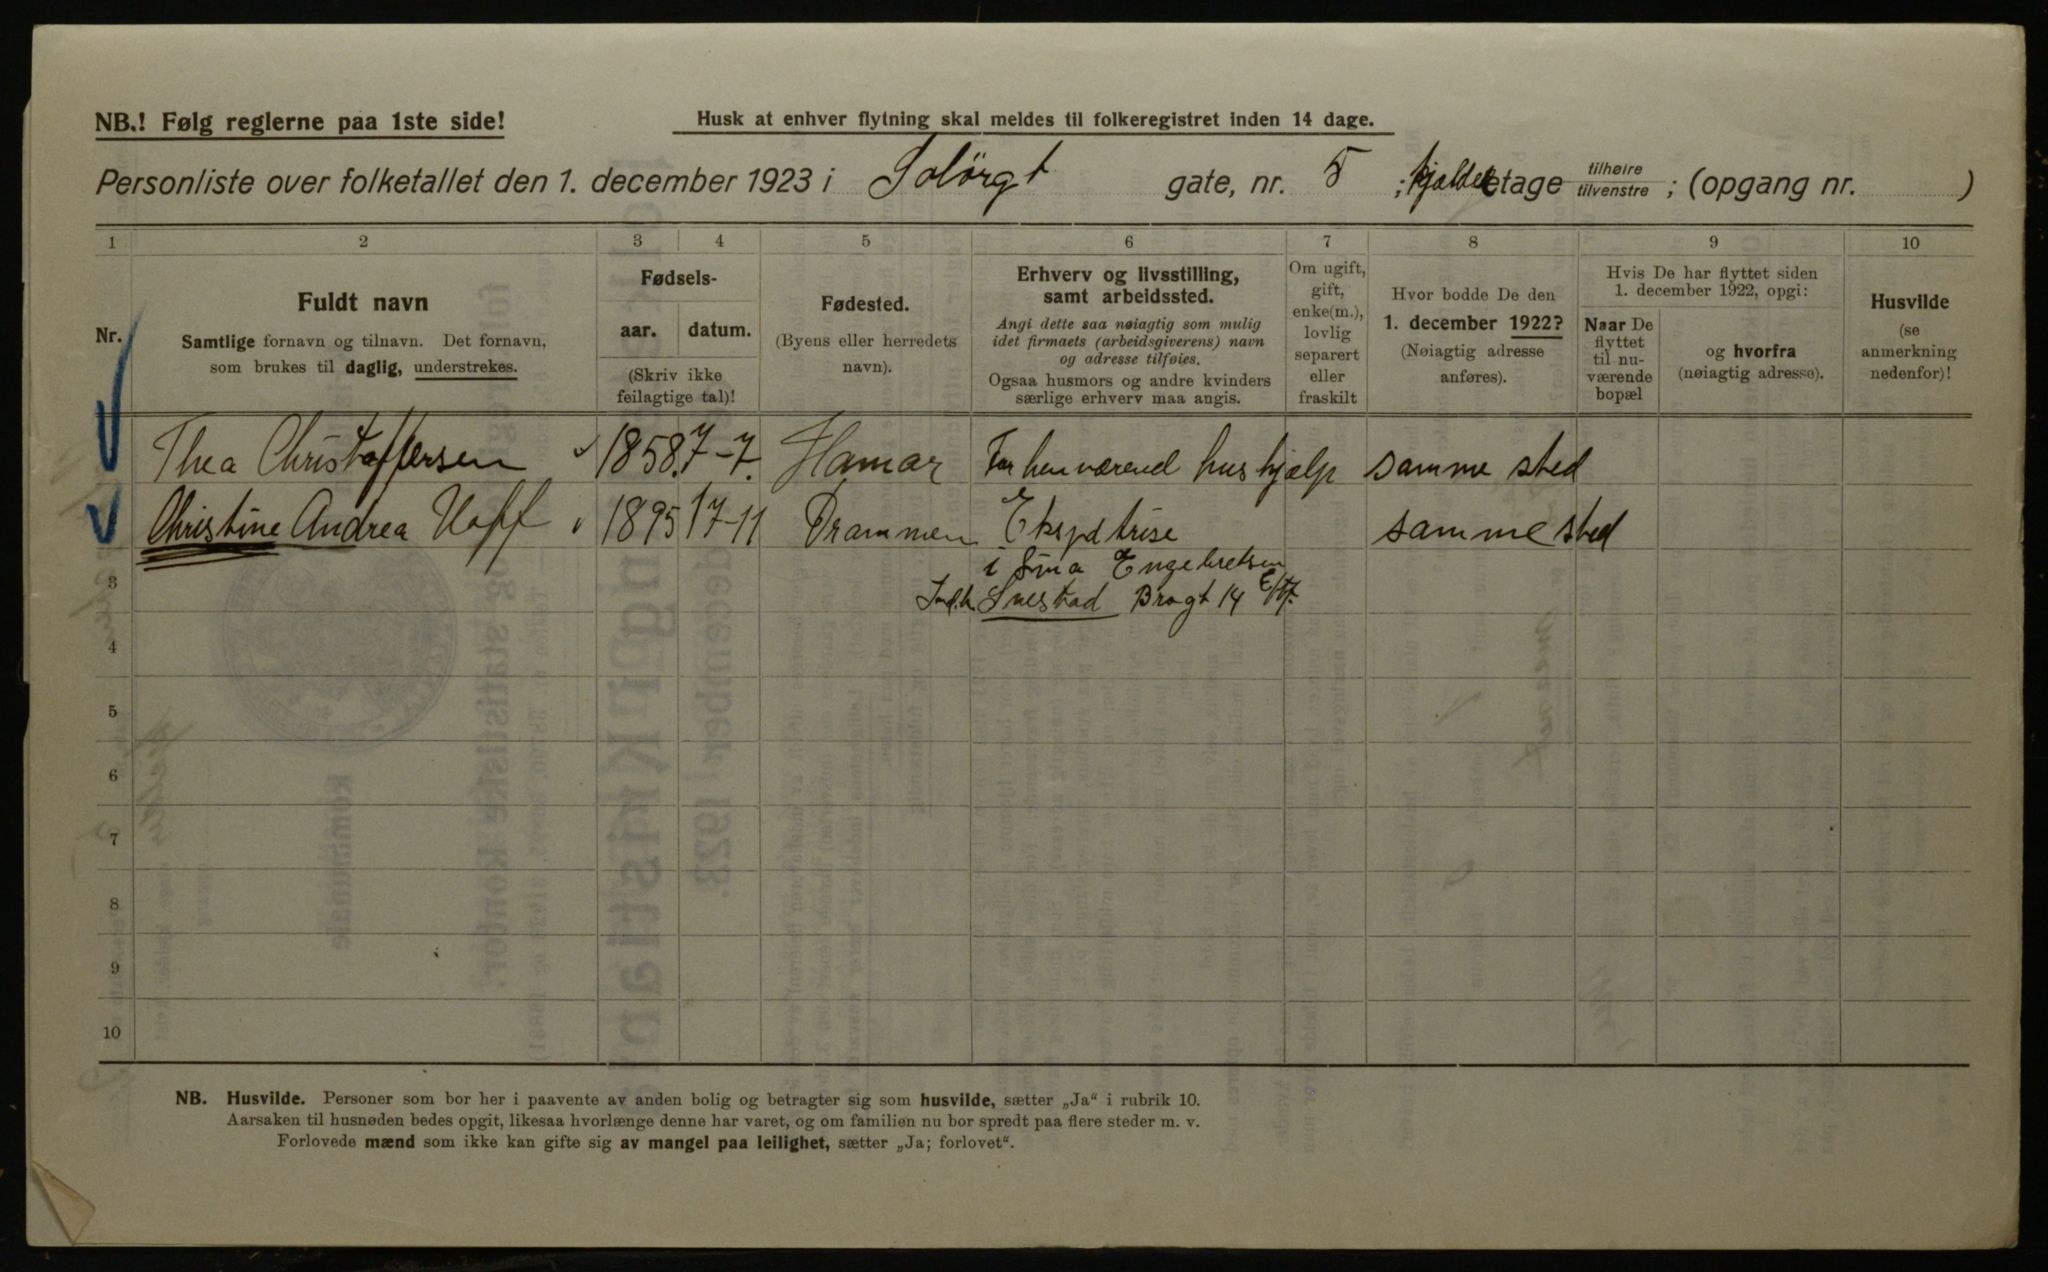 NB.! Følg reglerne paa 1ste side!
Husk at enhver flytning skal meldes til folkeregistret inden 14 dage.
Personliste over folketallet den 1. december 1923 i Solørgt gate, nr. 5 ; kjælder etage tilhøire tilvenstre ; (opgang nr. )
1 2 3 4 5 6 7 8 9 10
Nr.
Fuldt navn
Samtlige fornavn og tilnavn. Det fornavn,
som brukes til daglig, understrekes.
Fødsels-
aar. datum.
(Skriv ikke
feilagtige tal)!
Fødested.
(Byens eller herredets
navn).
Erhverv og livsstilling,
samt arbeidssted.
Angi dette saa nøiagtig som mulig
idet firmaets (arbeidsgiverens) navn
og adresse tilføies.
Ogsaa husmors og andre kvinders
særlige erhverv maa angis.
Om ugift,
gift,
enke(m.),
lovlig
separert
eller
fraskilt
Hvor bodde De den
1. december 1922?
(Nøiagtig adresse
anføres).
Hvis De har flyttet siden
1. december 1922, opgi:
Naar De
flyttet
til nu-
værende
bopæl
og hvorfra
(nøiagtig adresse).
Husvilde
(se
anmerkning
nedenfor)!
Thea Christoffersen 1858 7-7. Hamar Forhenværend hushjælp samme sted
Christine Andrea Hoff 1895 17-11 Drammen Ekspdtrise samme sted
3 i Sina Engebretsen
Indh. Snestad Brogt 14
4
5
6
7
8
9
10
NB. Husvilde. Personer som bor her i paavente av anden bolig og betragter sig som husvilde, sætter „Ja“ i rubrik 10.
Aarsaken til husnøden bedes opgit, likesaa hvorlænge denne har varet, og om familien nu bor spredt paa flere steder m. v.
Forlovede mænd som ikke kan gifte sig av mangel paa leilighet, sætter „Ja; forlovet“.